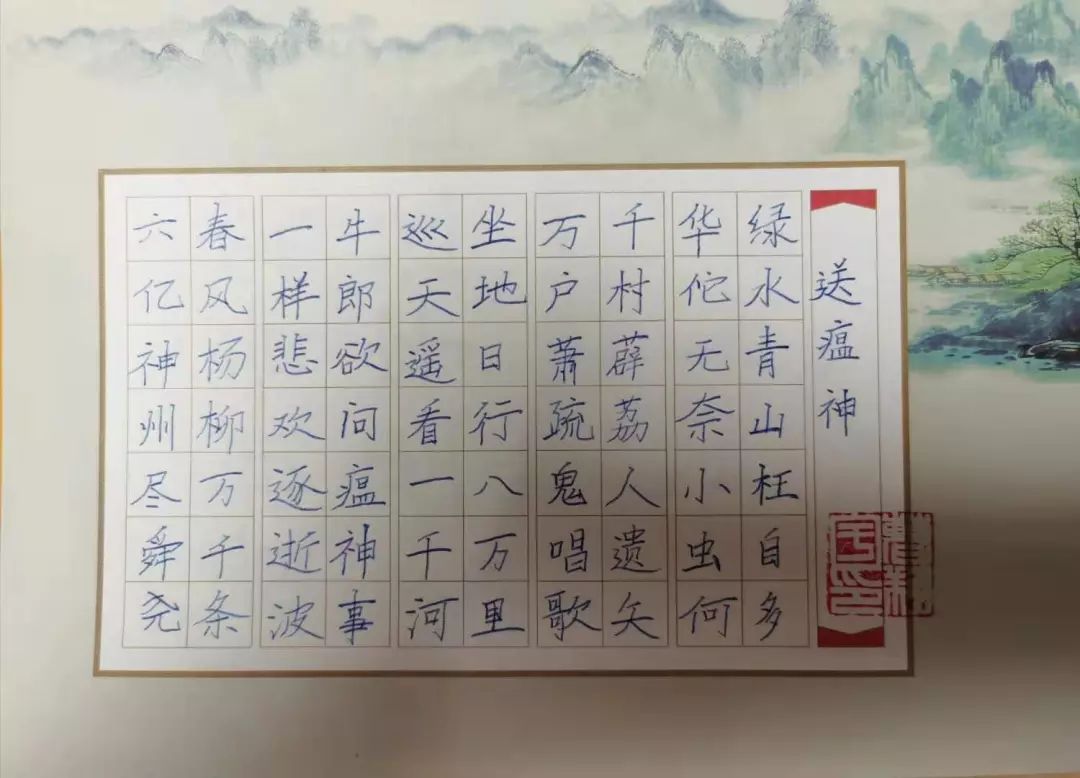 送瘟神
绿水青山枉自多
华佗无奈小虫何
千村薜荔人遗矢
万户萧疏鬼唱歌
坐地日行八万里
巡天遥看一千河
牛郎欲问瘟神事
一样悲欢逐逝波
春风杨柳万千条
六亿神州尽舜尧